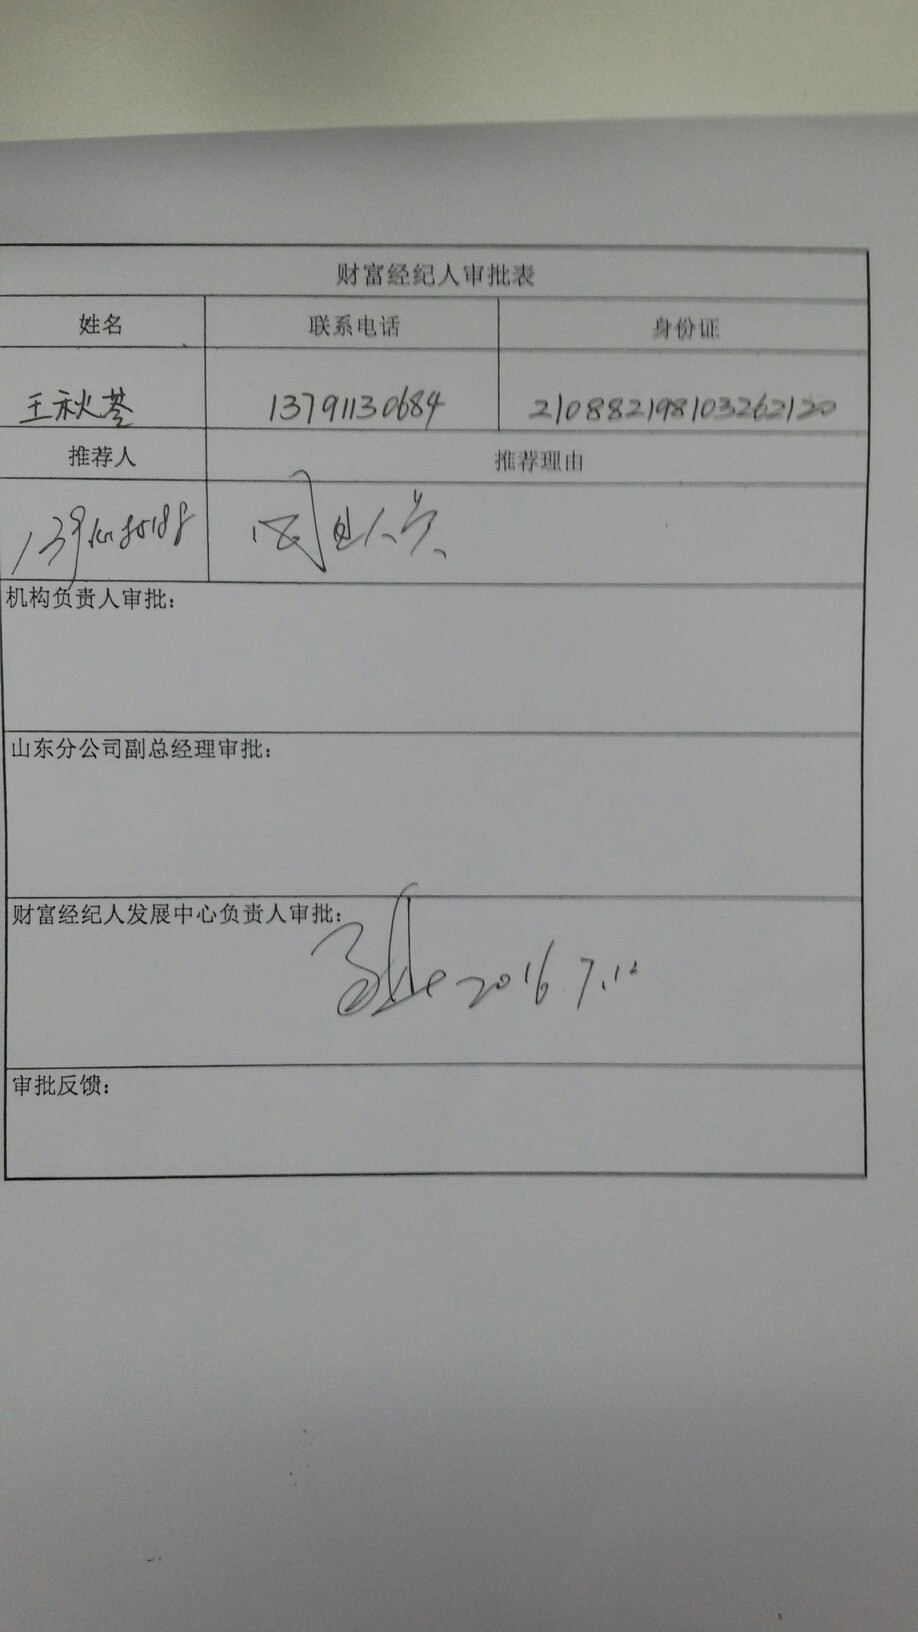 财富经纪人审批表
姓名 联系电话 身份证
王秋苓 13791130684 210882198103262120
推荐人 推荐理由
机构负责人审批：
山东分公司副总经理审批：
财富经纪人发展中心负责人审批：
2016.7.12
审批反馈：